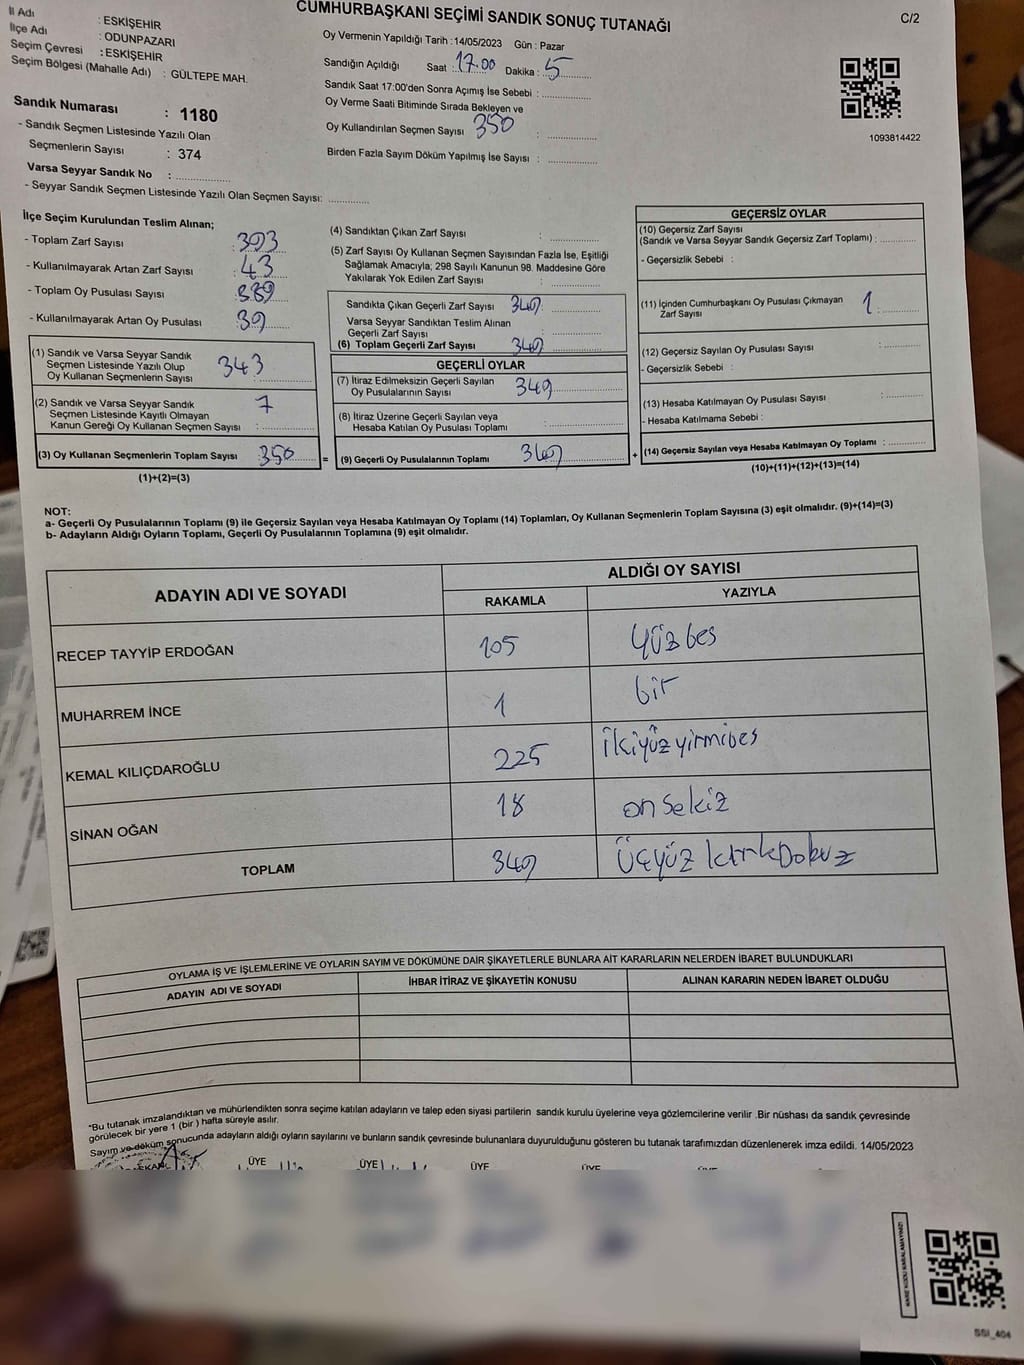 CUMHURBAŞKANI SEÇİMİ SANDIK SONUÇ TUTANAĞI
C/2
İl Adı : ESKİŞEHİR
İlçe Adı : ODUNPAZARI
Seçim Çevresi : ESKİŞEHİR
Seçim Bölgesi (Mahalle Adı) : GÜLTEPE MAH.
Sandık Numarası : 1180
- Sandık Seçmen Listesinde Yazılı Olan
Seçmenlerin Sayısı : 374
Varsa Seyyar Sandık No :
- Seyyar Sandık Seçmen Listesinde Yazılı Olan Seçmen Sayısı:
Oy Vermenin Yapıldığı Tarih :14/05/2023 Gün : Pazar
Sandığın Açıldığı Saat : 17.00 Dakika : 5
Sandık Saat 17:00'den Sonra Açımış İse Sebebi :
Oy Verme Saati Bitiminde Sırada Bekleyen ve
Oy Kullandırılan Seçmen Sayısı 350 :
Birden Fazla Sayım Döküm Yapılmış İse Sayısı :
1093814422
İlçe Seçim Kurulundan Teslim Alınan:
- Toplam Zarf Sayısı : 393
- Kullanılmayarak Artan Zarf Sayısı : 43
- Toplam Oy Pusulası Sayısı : 389
- Kullanılmayarak Artan Oy Pusulası : 39
(1) Sandık ve Varsa Seyyar Sandık
Seçmen Listesinde Yazılı Olup
Oy Kullanan Seçmenlerin Sayısı : 343
(2) Sandık ve Varsa Seyyar Sandık
Seçmen Listesinde Kayıtlı Olmayan
Kanun Gereği Oy Kullanan Seçmen Sayısı : 7
(3) Oy Kullanan Seçmenlerin Toplam Sayısı : 350
(1)+(2)=(3)
(4) Sandıktan Çıkan Zarf Sayısı :
(5) Zarf Sayısı Oy Kullanan Seçmen Sayısından Fazla İse, Eşitliği
Sağlamak Amacıyla; 298 Sayılı Kanunun 98. Maddesine Göre
Yakılarak Yok Edilen Zarf Sayısı :
Sandıkta Çıkan Geçerli Zarf Sayısı : 349
Varsa Seyyar Sandıktan Teslim Alınan
Geçerli Zarf Sayısı :
(6) Toplam Geçerli Zarf Sayısı : 349
GEÇERLİ OYLAR
(7) İtiraz Edilmeksizin Geçerli Sayılan
Oy Pusulalarının Sayısı : 349
(8) İtiraz Üzerine Geçerli Sayılan veya
Hesaba Katılan Oy Pusulası Toplamı :
= (9) Geçerli Oy Pusulalarının Toplamı : 349
GEÇERSİZ OYLAR
(10) Geçersiz Zarf Sayısı
(Sandık ve Varsa Seyyar Sandık Geçersiz Zarf Toplamı) :
- Geçersizlik Sebebi :
(11) İçinden Cumhurbaşkanı Oy Pusulası Çıkmayan
Zarf Sayısı : 1
(12) Geçersiz Sayılan Oy Pusulası Sayısı :
- Geçersizlik Sebebi :
(13) Hesaba Katılmayan Oy Pusulası Sayısı :
- Hesaba Katılmama Sebebi :
+ (14) Geçersiz Sayılan veya Hesaba Katılmayan Oy Toplamı :
(10)+(11)+(12)+(13)=(14)
NOT:
a- Geçerli Oy Pusulalarının Toplamı (9) ile Geçersiz Sayılan veya Hesaba Katılmayan Oy Toplamı (14) Toplamları, Oy Kullanan Seçmenlerin Toplam Sayısına (3) eşit olmalıdır. (9)+(14)=(3)
b- Adayların Aldığı Oyların Toplamı, Geçerli Oy Pusulalarının Toplamına (9) eşit olmalıdır.
ADAYIN ADI VE SOYADI
ALDIĞI OY SAYISI
RAKAMLA YAZIYLA
RECEP TAYYİP ERDOĞAN 105 Yüzbes
MUHARREM İNCE 1 bir
KEMAL KILIÇDAROĞLU 225 ikiyüzyirmibes
SİNAN OĞAN 18 onsekiz
TOPLAM 349
OYLAMA İŞ VE İŞLEMLERİNE VE OYLARIN SAYIM VE DÖKÜMÜNE DAİR ŞİKAYETLERLE BUNLARA AİT KARARLARIN NELERDEN İBARET BULUNDUKLARI
ADAYIN ADI VE SOYADI İHBAR İTİRAZ VE ŞİKAYETİN KONUSU ALINAN KARARIN NEDEN İBARET OLDUĞU
*Bu tutanak imzalandıktan ve mühürlendikten sonra seçime katılan adayların ve talep eden siyasi partilerin sandık kurulu üyelerine veya gözlemcilerine verilir .Bir nüshası da sandık çevresinde
görülecek bir yere 1 (bir ) hafta süreyle asılır.
Sayım ve döküm sonucunda adayların aldığı oyların sayılarını ve bunların sandık çevresinde bulunanlara duyurulduğunu gösteren bu tutanak tarafımızdan düzenlenerek imza edildi. 14/05/2023
ÜYE ÜYE ÜYE ÜYE ÜYE
KARE KODU KARALAMAYINIZ!
SSİ_404